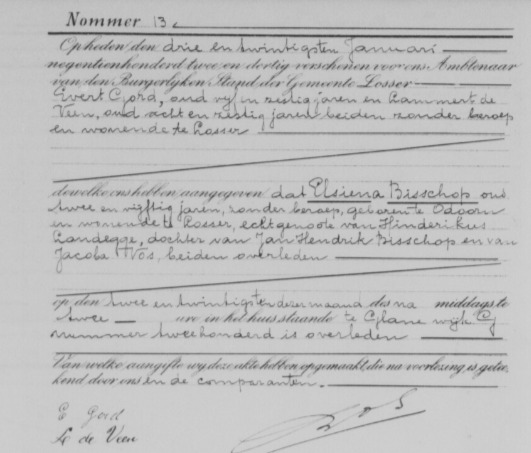 Nommer 13
Op heden den drie en twintigsten Januari
negentienhonderd twee en dertig verschenen voor ons Ambtenaar
van den Burgerlijken Stand der Gemeente Losser
Evert Gjord, oud vijf en zestig jaren en Lammert de
Veen, oud acht en zestig jaren beiden zonder beroep
en wonende te Losser
dewelke ons hebben aangegeven dat Elsiena Bisschop oud
twee en vijftig jaren, zonder beroep, geboren te Odoorn
en wonende te Losser, echtgenoote van Hinderikus
Landegge, dochter van Jan Hendrik Bisschop en van
Jacoba Vos, beiden overleden
op den twee en twintigsten dezer maand des na middags te
twee ure in het huis staande te Glane wijk G
nummer tweehonderd is overleden
Van welke aangifte wij deze akte hebben opgemaakt, die na voorlezing is getee-
kend door ons en de comparanten.
E Gord
L. de Veen